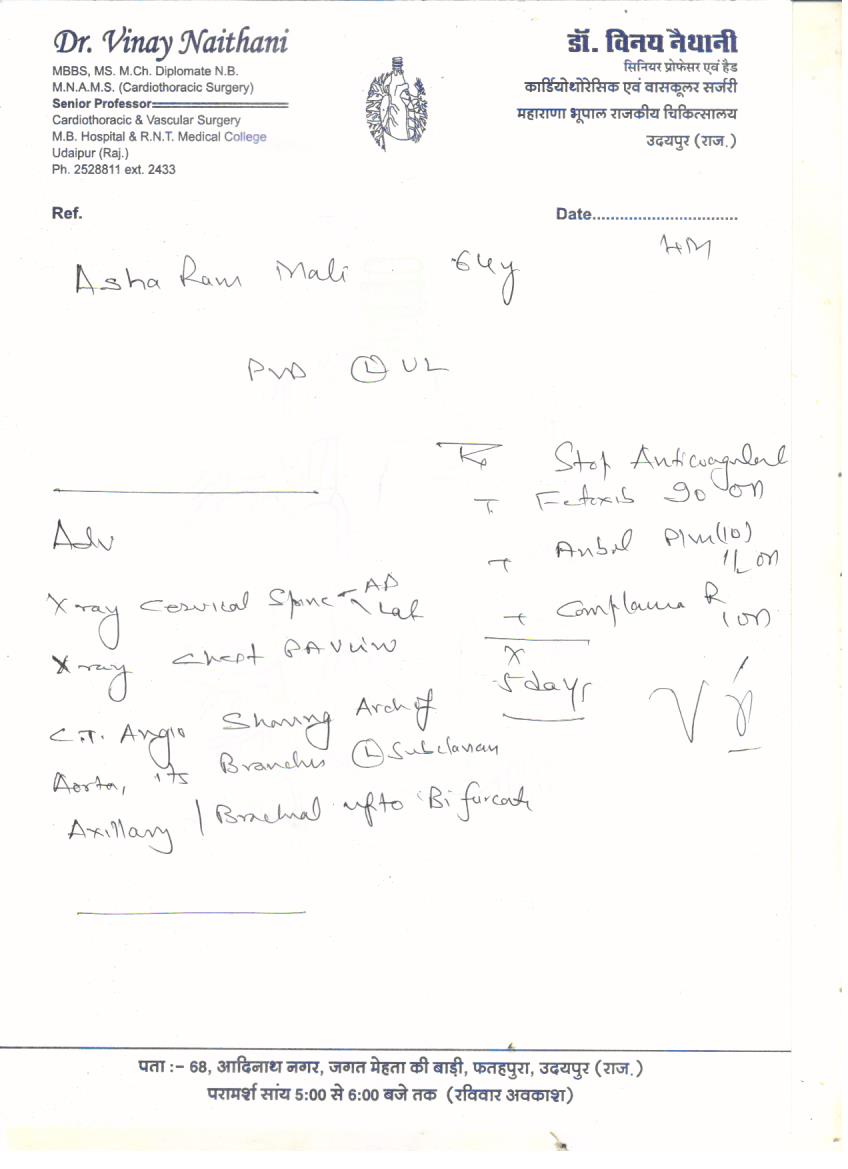 Dr. Vinay Naithani
MBBS, MS. M.Ch. Diplomate N.B.
M.N.A.M.S. (Cardiothoracic Surgery)
Senior Professor
Cardiothoracic & Vascular Surgery
M.B. Hospital & R.N.T. Medical College
Udaipur (Raj.)
Ph. 2528811 ext. 2433
डॉ. विनय नैथानी
सिनियर प्रोफेसर एवं हैड
कार्डियोथोरेसिक एवं वासकूलर सर्जरी
महाराणा भूपाल राजकीय चिकित्सालय
उदयपुर (राज.)
Ref.
Date...............................
Asha Ram Mali 64y
PVD Ⓛ UL
Stop Anticoagulant
90 OD
(10)
OD
R
1 OD
x
5 days
Adv
X ray Cervical Spine AP
Lat
X ray Chest PA View
C.T. Angio Showing Arch of
Aorta, its Branches Ⓛ Subclavian
Axillary / Brachial upto Bifurcate
पता :– 68, आदिनाथ नगर, जगत मेहता की बाड़ी, फतहपुरा, उदयपुर (राज.)
परामर्श सांय 5:00 से 6:00 बजे तक (रविवार अवकाश)